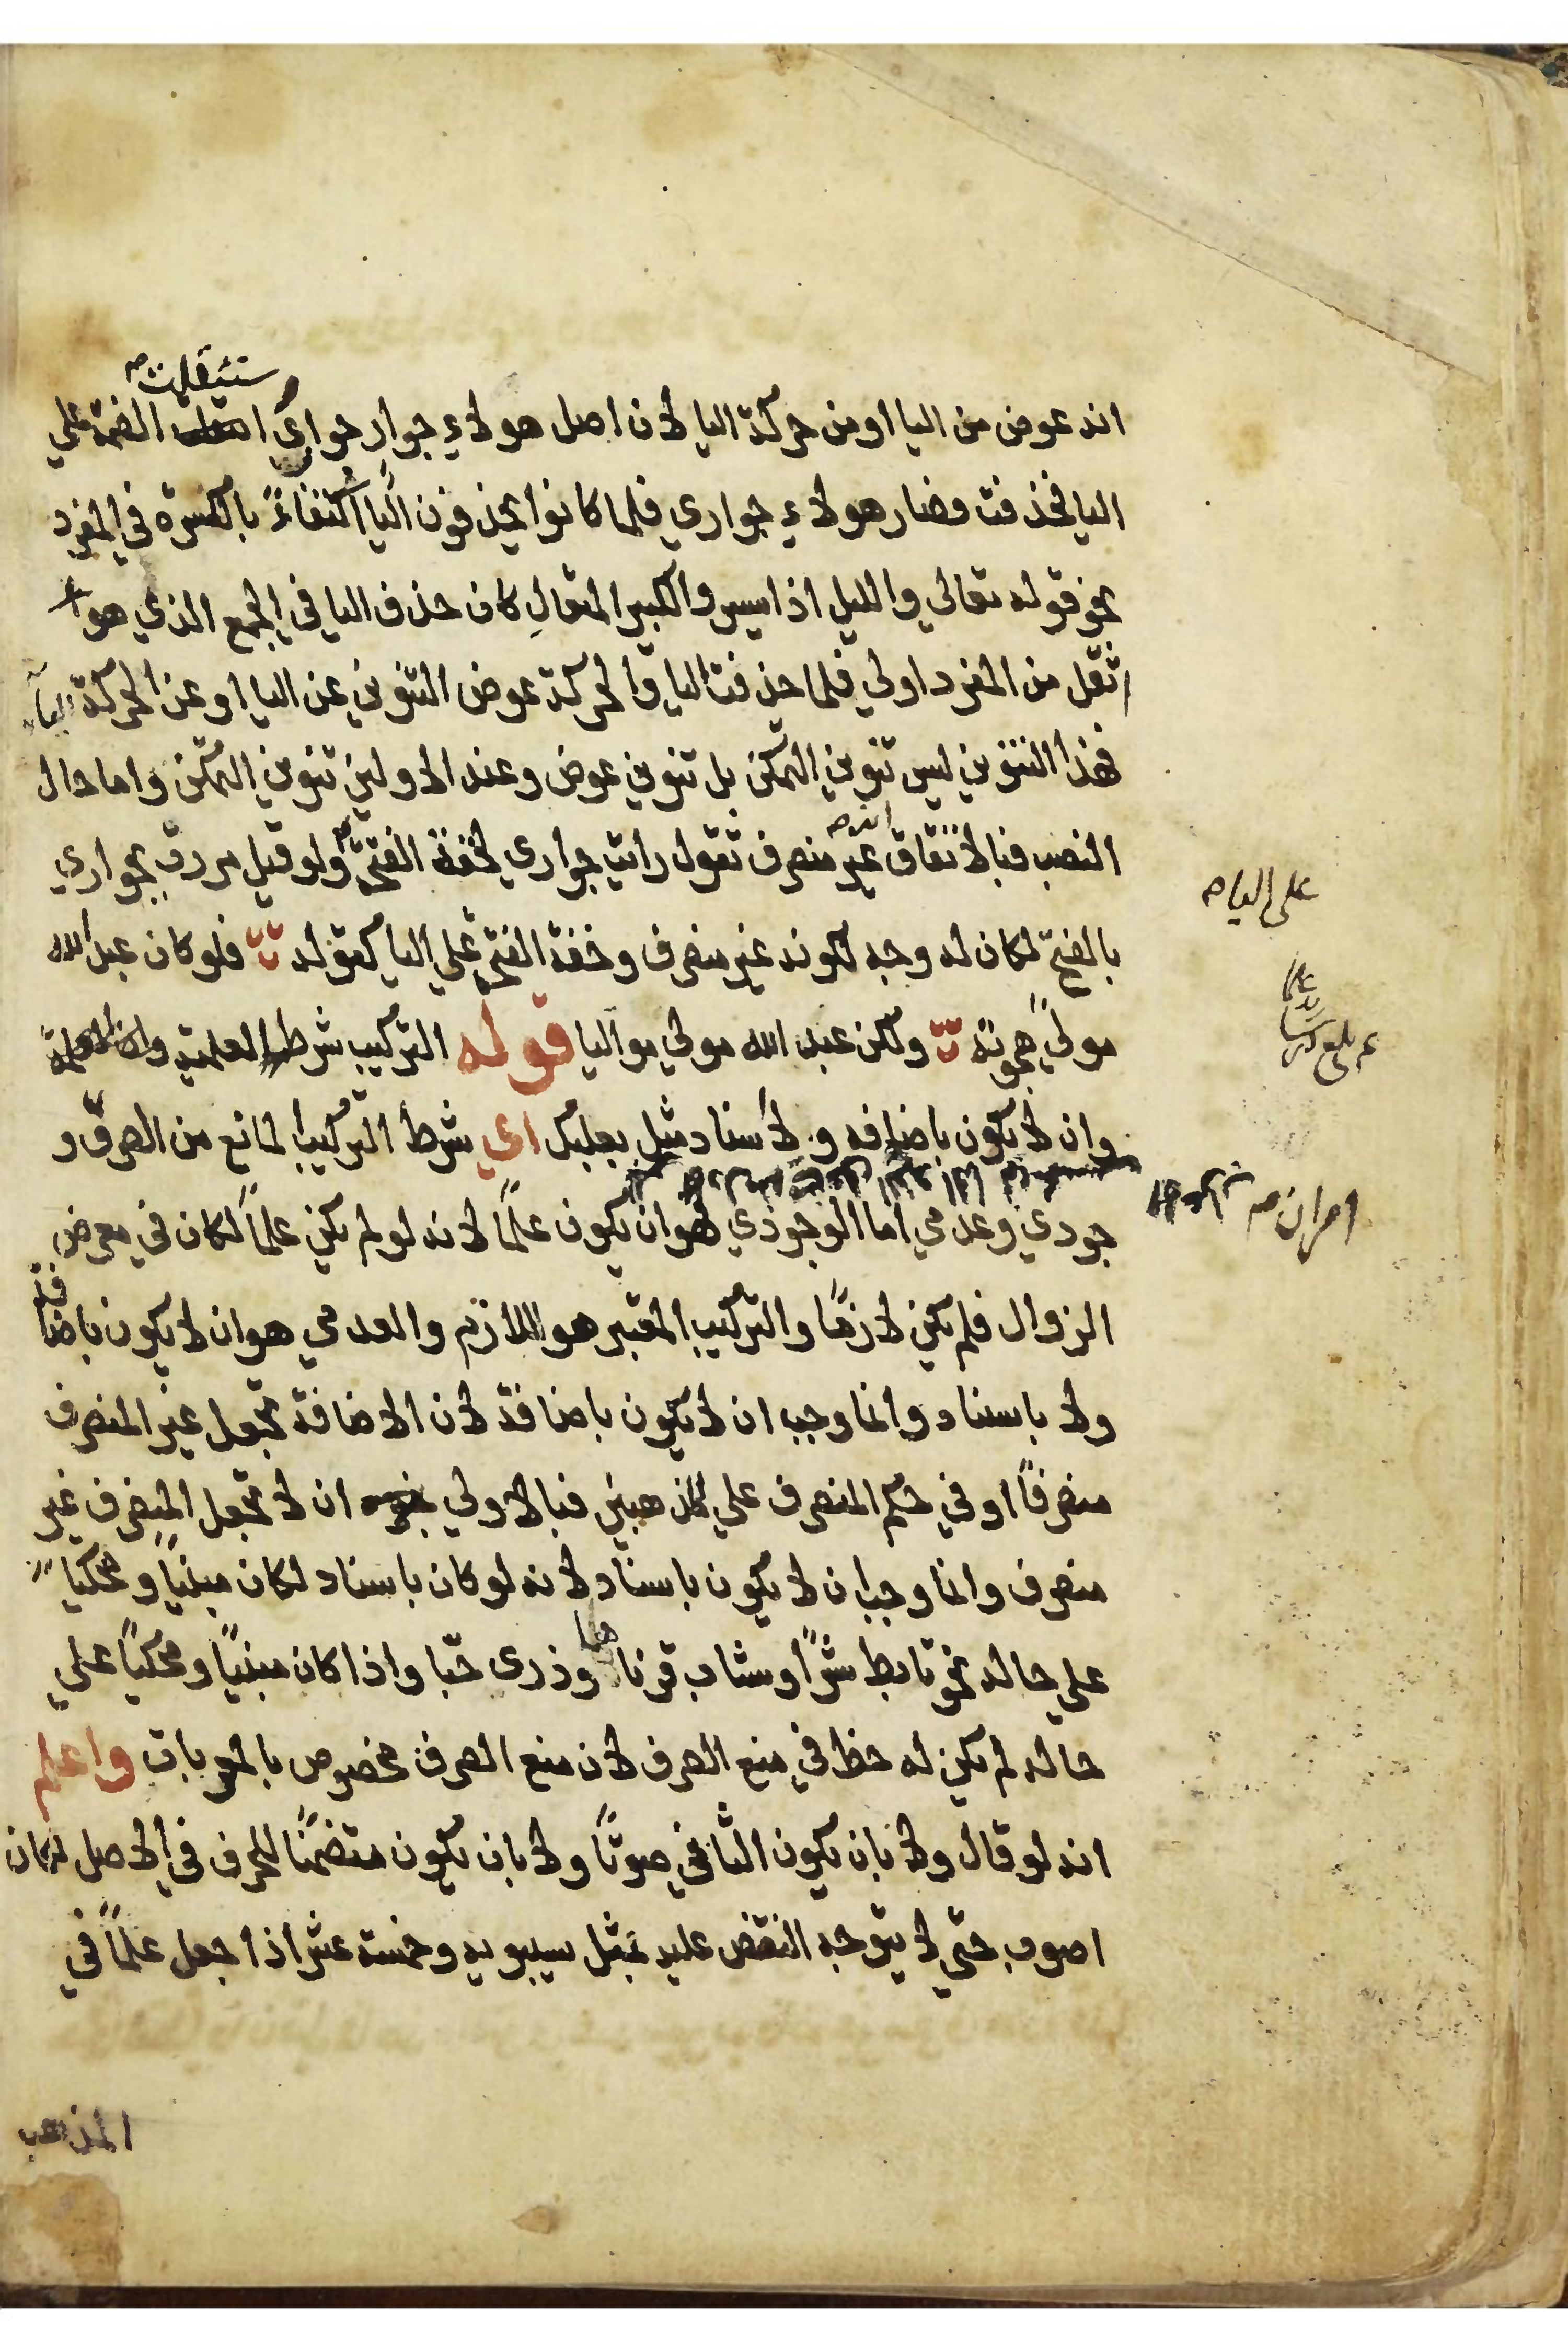 ستثقلت صح
انه عوض من اليا او من حركة اليا لان اصل هولاء جوار جواري ا الضمة علي
اليا فحذفت فصار هولاء جواري فلما كانوا يحذفون اليا اكتفاءً بالكسرة في المفرد
نحو قوله تعالي والليل اذا يسر والكبير المتعالِ كان حذف اليا في الجمع الذي هو
اثقل من المفرد اولي فلما حذفت اليا والحركة عوض التنوين عن اليا او عن الحركة اليا
فهذا التنوين ليس تنوين التمكن بل تنوين عوض وعند الاولين تنوين التمكن واما حال
النصب فبالاتفاق غير منصرف تقول رايت جواري لخفة الفتحة ولو قيل مررت بجواري
على اليا صح
بالفتح لكان له وجه لكونه غير منصرف وخفة الفتح علي اليا كقوله فلو كان عبد الله
مولىً هجوته ولكن عبد الله مولي مواليا قوله التركيب شرطه العلمية
وان لا يكون باضافه ولا اسناد مثل بعلبك اي شرط التركيب المانع من الصرف و
امران صح
جودي وعدمي اما الوجودي فهو ان يكون علمًا لانه لو لم يكن علمًا لكان في معرض
الزوال فلم يكن لازمًا والتركيب المعتبر هو اللازم والعدمي هو ان لا يكون باضافة
ولا باسناد وانما وجب ان لا يكون باضافة لان الاضافة تجعل غير المنصرف
منصرفًا او في حكم المنصرف علي المذهبين فبالاولي ان لا تجعل المنصرف غير
منصرف وانما وجب ان لا يكون باسناد لانه لو كان باسناد لكان مبنيًا ومحكيًا
علي حاله نحو تابط شرًا وشاب قرناها وذرى حبّا واذا كان مبنيًا ومحكيًا علي
حاله لم يكن له حظ في منع الصرف لان منع الصرف مخصوص بالمعربات واعلم
انه لو قال ولا بان يكون الثاني صوتًا ولا بان يكون متضمنًا للحرف في الاصل لكان
اصوب حتي لا يتوجه النقض عليه بمثل سيبويه وخمسة عشر اذا جعل علمًا في
المذهب